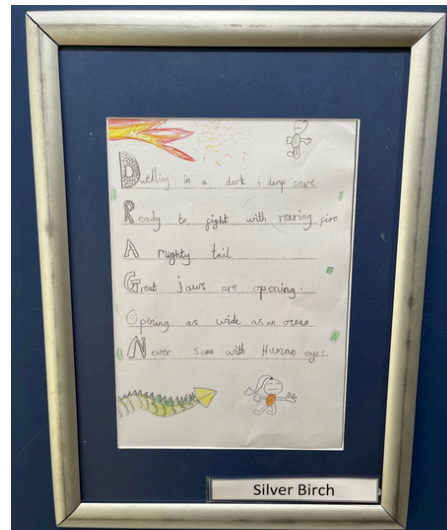 Dwelling in a dark, damp cave
Ready to fight with roaring fire
A mighty tail
Great jaws are opening.
Opening as wide as an ocean
Never seen with Human eyes.
Silver Birch